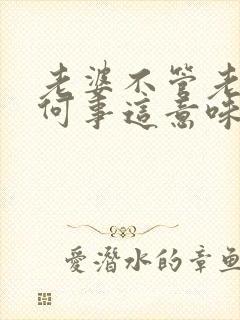 老婆不管老
何事這意味
愛潛水的章魚